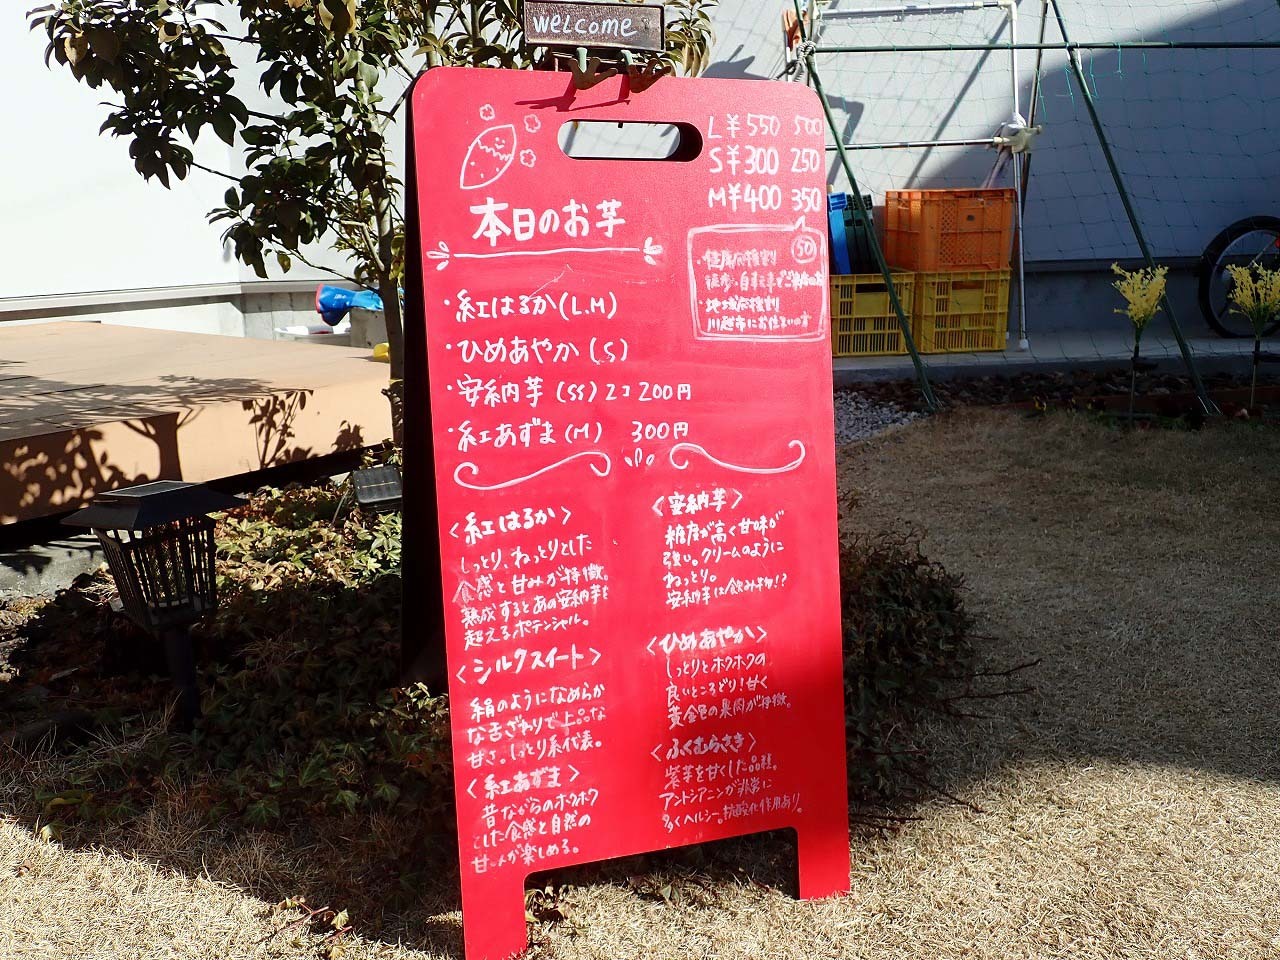 welcome
L ¥550 500
S ¥300 250
M ¥400 350
本日のお芋
50
・健康応援割
徒歩、自転車でご来店の方
・地域応援割
川越市にお住まいの方
・紅はるか(L.M)
・ひめあやか(S)
・安納芋(SS)2コ200円
・紅あずま(M) 300円
<紅はるか>
しっとり、ねっとりとした
食感と甘みが特徴。
熟成するとあの安納芋を
超えるポテンシャル。
<シルクスイート>
絹のようになめらか
な舌ざわりで上品な
甘さ。しっとり系代表。
<紅あずま>
昔ながらのホクホク
とした食感と自然の
甘みが楽しめる。
<安納芋>
糖度が高く甘味が
強い。クリームのように
ねっとり。
安納芋は飲み物!?
<ひめあやか>
しっとりとホクホクの
良いところどり!甘く
黄金色の果肉が特徴。
<ふくむらさき>
紫芋を甘くした品種。
アントシアニンが非常に
多くヘルシー。抗酸化作用あり。